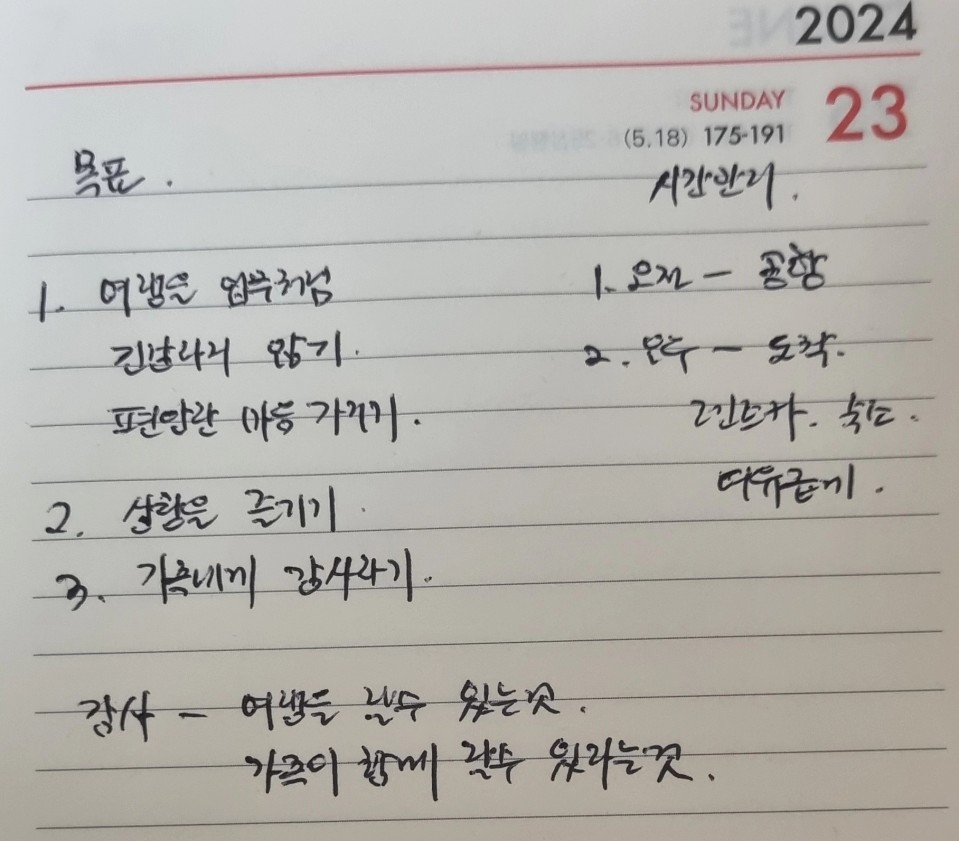 2024
SUNDAY 23
(5.18) 175-191
목표.
1. 여행을 업무처럼
긴급하게 않기.
편안한 마음 가지기.
2. 상황을 즐기기.
3. 가족에게 감사하기.
시간관리.
1. 오전 - 공항
2. 오후 - 도착.
렌트카. 숙소.
여유롭게.
감사 - 여행을 할수 있는것.
가족이 함께 할수 있다는것.